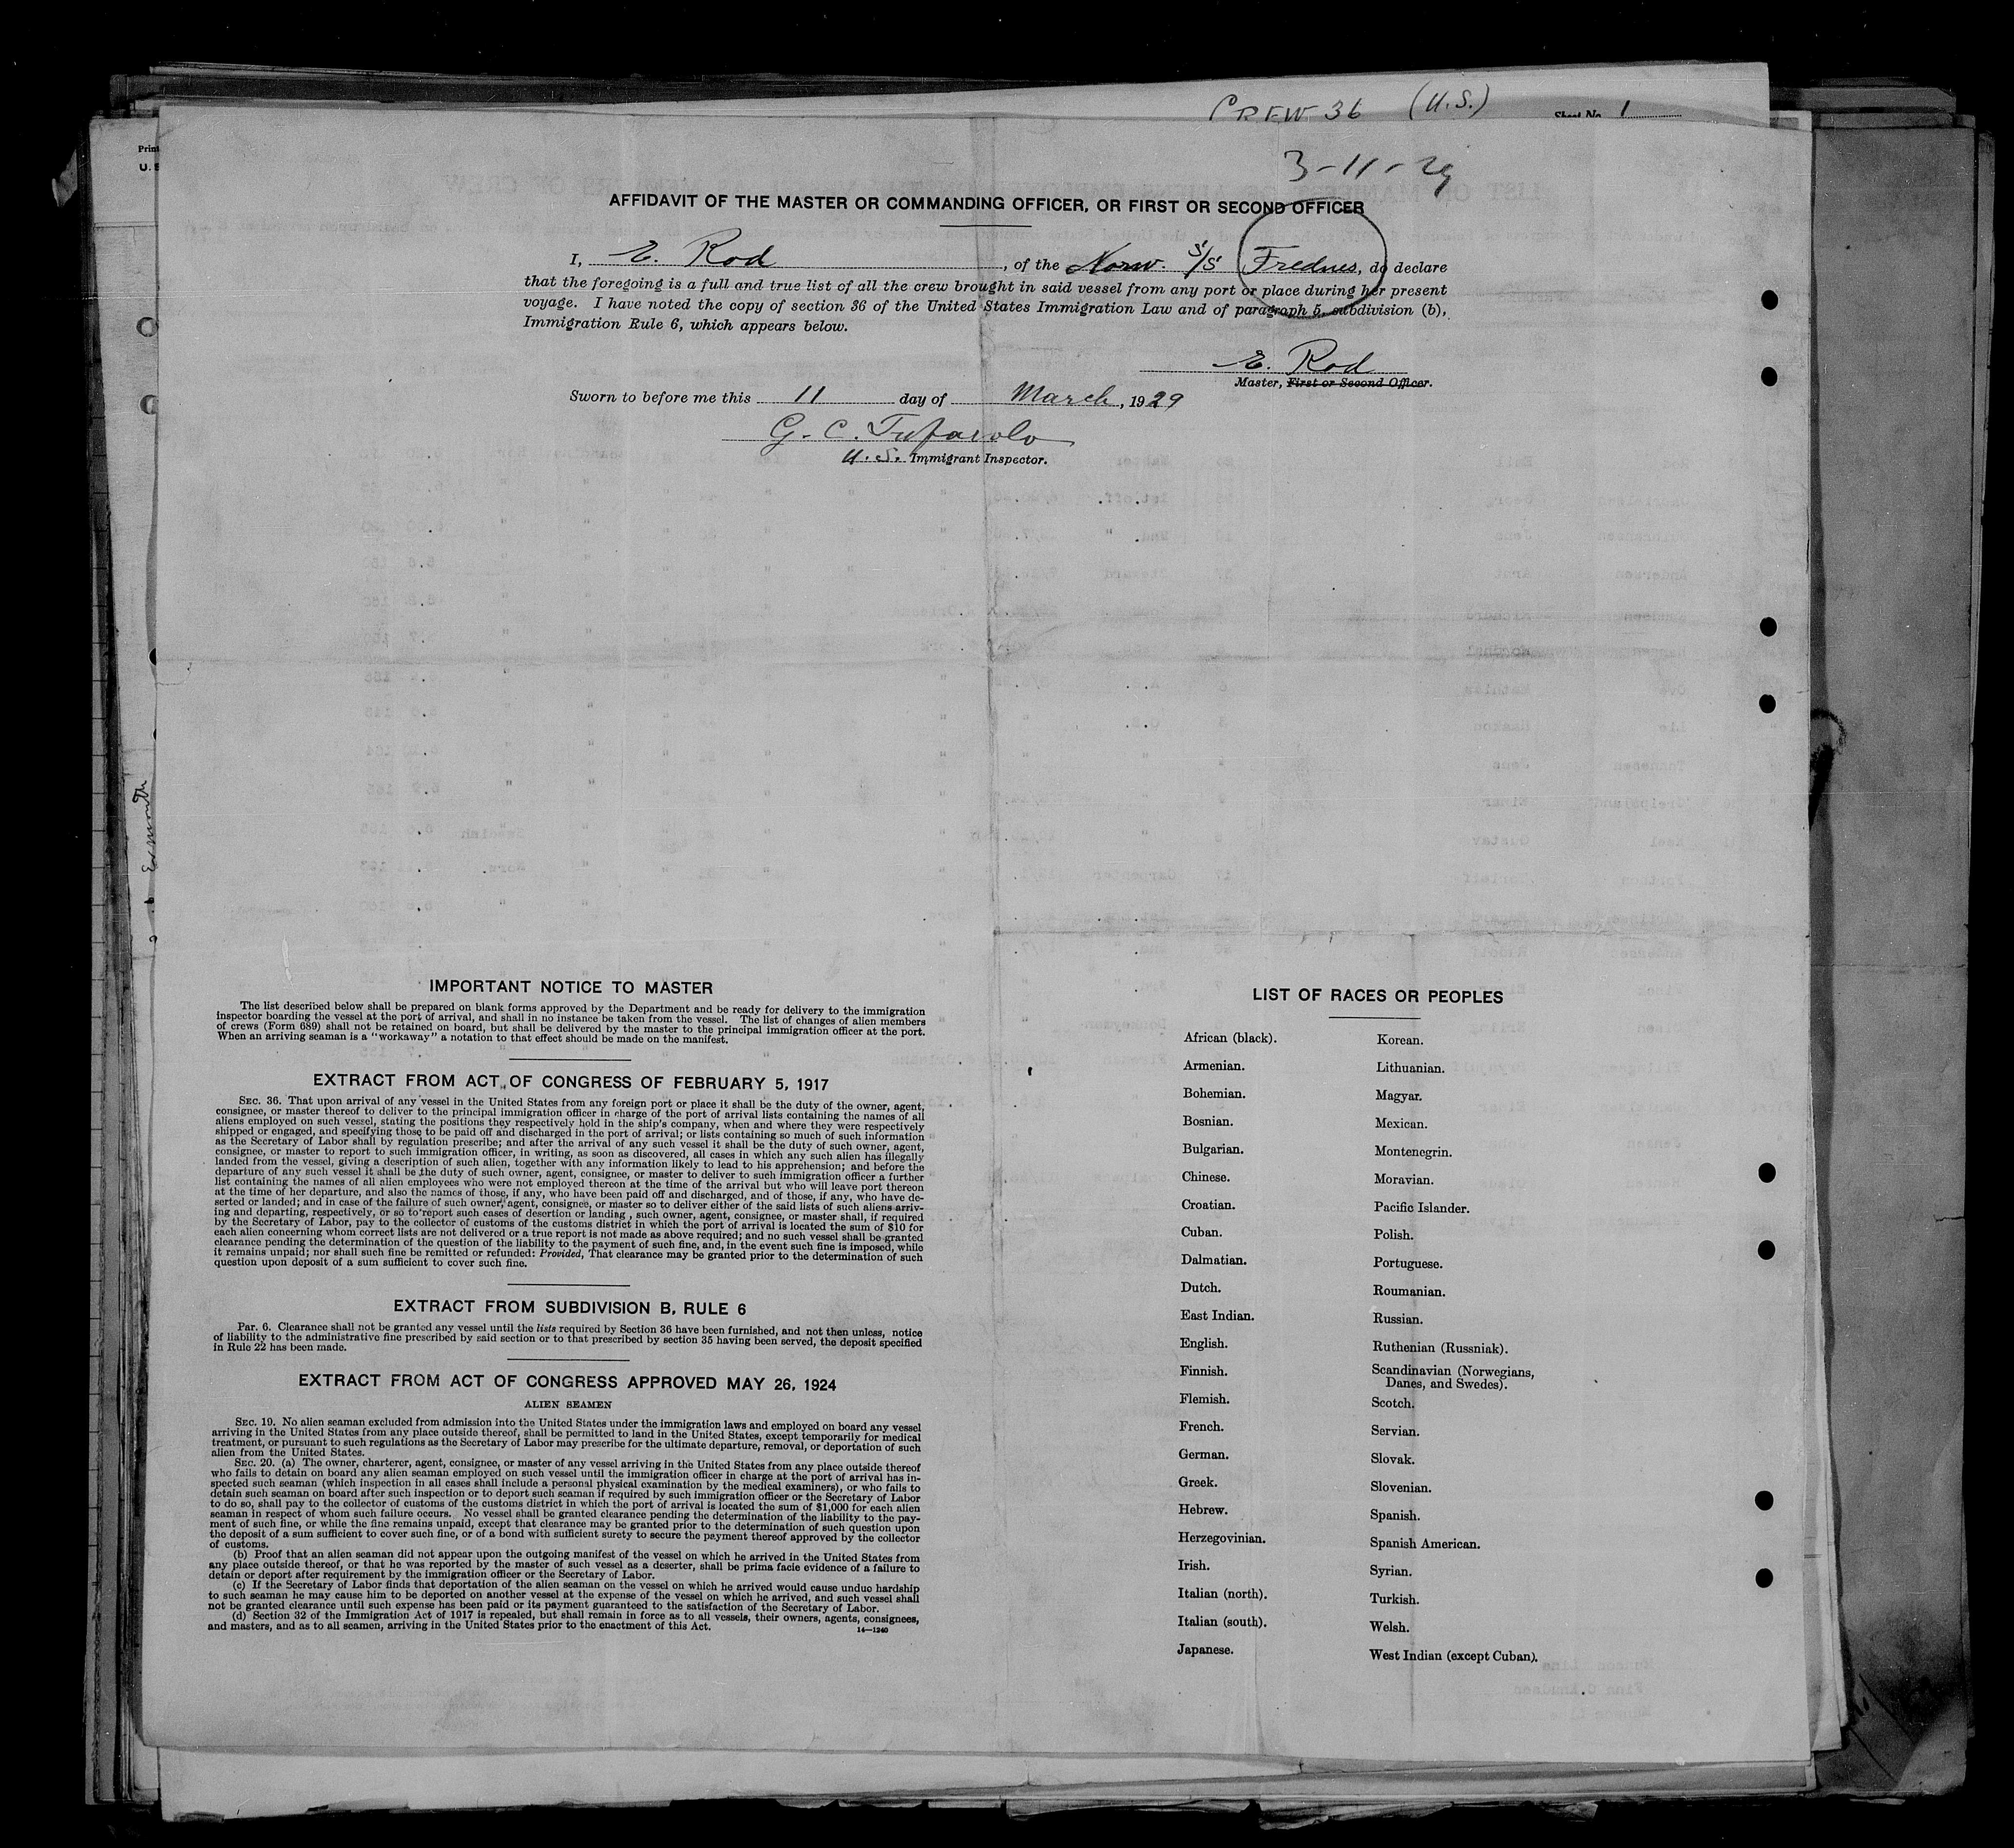 CREW 36 (U.S.) Sheet No. 1
3-11-29
Print
U. S
AFFIDAVIT OF THE MASTER OR COMMANDING OFFICER, OR FIRST OR SECOND OFFICER
I, E. Rod, of the Norw. S/S Frednes, do declare
that the foregoing is a full and true list of all the crew brought in said vessel from any port or place during her present
voyage. I have noted the copy of section 36 of the United States Immigration Law and of paragraph 5, subdivision (b),
Immigration Rule 6, which appears below.
E. Rod
Master, First or Second Officer.
Sworn to before me this 11 day of March, 1929
G. C. Tufarolo
U. S. Immigrant Inspector.
Exmouth
IMPORTANT NOTICE TO MASTER
The list described below shall be prepared on blank forms approved by the Department and be ready for delivery to the immigration
inspector boarding the vessel at the port of arrival, and shall in no instance be taken from the vessel. The list of changes of alien members
of crews (Form 689) shall not be retained on board, but shall be delivered by the master to the principal immigration officer at the port.
When an arriving seaman is a "workaway" a notation to that effect should be made on the manifest.
EXTRACT FROM ACT OF CONGRESS OF FEBRUARY 5, 1917
SEC. 36. That upon arrival of any vessel in the United States from any foreign port or place it shall be the duty of the owner, agent,
consignee, or master thereof to deliver to the principal immigration officer in charge of the port of arrival lists containing the names of all
aliens employed on such vessel, stating the positions they respectively hold in the ship's company, when and where they were respectively
shipped or engaged, and specifying those to be paid off and discharged in the port of arrival; or lists containing so much of such information
as the Secretary of Labor shall by regulation prescribe; and after the arrival of any such vessel it shall be the duty of such owner, agent,
consignee, or master to report to such immigration officer, in writing, as soon as discovered, all cases in which any such alien has illegally
landed from the vessel, giving a description of such alien, together with any information likely to lead to his apprehension; and before the
departure of any such vessel it shall be the duty of such owner, agent, consignee, or master to deliver to such immigration officer a further
list containing the names of all alien employees who were not employed thereon at the time of the arrival but who will leave port thereon
at the time of her departure, and also the names of those, if any, who have been paid off and discharged, and of those, if any, who have de-
serted or landed; and in case of the failure of such owner, agent, consignee, or master so to deliver either of the said lists of such aliens arriv-
ing and departing, respectively, or so to report such cases of desertion or landing, such owner, agent, consignee, or master shall, if required
by the Secretary of Labor, pay to the collector of customs of the customs district in which the port of arrival is located the sum of $10 for
each alien concerning whom correct lists are not delivered or a true report is not made as above required; and no such vessel shall be granted
clearance pending the determination of the question of the liability to the payment of such fine, and, in the event such fine is imposed, while
it remains unpaid; nor shall such fine be remitted or refunded: Provided, That clearance may be granted prior to the determination of such
question upon deposit of a sum sufficient to cover such fine.
EXTRACT FROM SUBDIVISION B, RULE 6
PAR. 6. Clearance shall not be granted any vessel until the lists required by Section 36 have been furnished, and not then unless, notice
of liability to the administrative fine prescribed by said section or to that prescribed by section 35 having been served, the deposit specified
in Rule 22 has been made.
EXTRACT FROM ACT OF CONGRESS APPROVED MAY 26, 1924
ALIEN SEAMEN
SEC. 19. No alien seaman excluded from admission into the United States under the immigration laws and employed on board any vessel
arriving in the United States from any place outside thereof, shall be permitted to land in the United States, except temporarily for medical
treatment, or pursuant to such regulations as the Secretary of Labor may prescribe for the ultimate departure, removal, or deportation of such
alien from the United States.
SEC. 20. (a) The owner, charterer, agent, consignee, or master of any vessel arriving in the United States from any place outside thereof
who fails to detain on board any alien seaman employed on such vessel until the immigration officer in charge at the port of arrival has in-
spected such seaman (which inspection in all cases shall include a personal physical examination by the medical examiners), or who fails to
detain such seaman on board after such inspection or to deport such seaman if required by such immigration officer or the Secretary of Labor
to do so, shall pay to the collector of customs of the customs district in which the port of arrival is located the sum of $1,000 for each alien
seaman in respect of whom such failure occurs. No vessel shall be granted clearance pending the determination of the liability to the pay-
ment of such fine, or while the fine remains unpaid, except that clearance may be granted prior to the determination of such question upon
the deposit of a sum sufficient to cover such fine, or of a bond with sufficient surety to secure the payment thereof approved by the collector
of customs.
(b) Proof that an alien seaman did not appear upon the outgoing manifest of the vessel on which he arrived in the United States from
any place outside thereof, or that he was reported by the master of such vessel as a deserter, shall be prima facie evidence of a failure to
detain or deport after requirement by the immigration officer or the Secretary of Labor.
(c) If the Secretary of Labor finds that deportation of the alien seaman on the vessel on which he arrived would cause undue hardship
to such seaman he may cause him to be deported on another vessel at the expense of the vessel on which he arrived, and such vessel shall
not be granted clearance until such expense has been paid or its payment guaranteed to the satisfaction of the Secretary of Labor.
(d) Section 32 of the Immigration Act of 1917 is repealed, but shall remain in force as to all vessels, their owners, agents, consignees,
and masters, and as to all seamen, arriving in the United States prior to the enactment of this Act.
14—1240
LIST OF RACES OR PEOPLES
African (black).
Armenian.
Bohemian.
Bosnian.
Bulgarian.
Chinese.
Croatian.
Cuban.
Dalmatian.
Dutch.
East Indian.
English.
Finnish.
Flemish.
French.
German.
Greek.
Hebrew.
Herzegovinian.
Irish.
Italian (north).
Italian (south).
Japanese.
Korean.
Lithuanian.
Magyar.
Mexican.
Montenegrin.
Moravian.
Pacific Islander.
Polish.
Portuguese.
Roumanian.
Russian.
Ruthenian (Russniak).
Scandinavian (Norwegians,
Danes, and Swedes).
Scotch.
Servian.
Slovak.
Slovenian.
Spanish.
Spanish American.
Syrian.
Turkish.
Welsh.
West Indian (except Cuban).